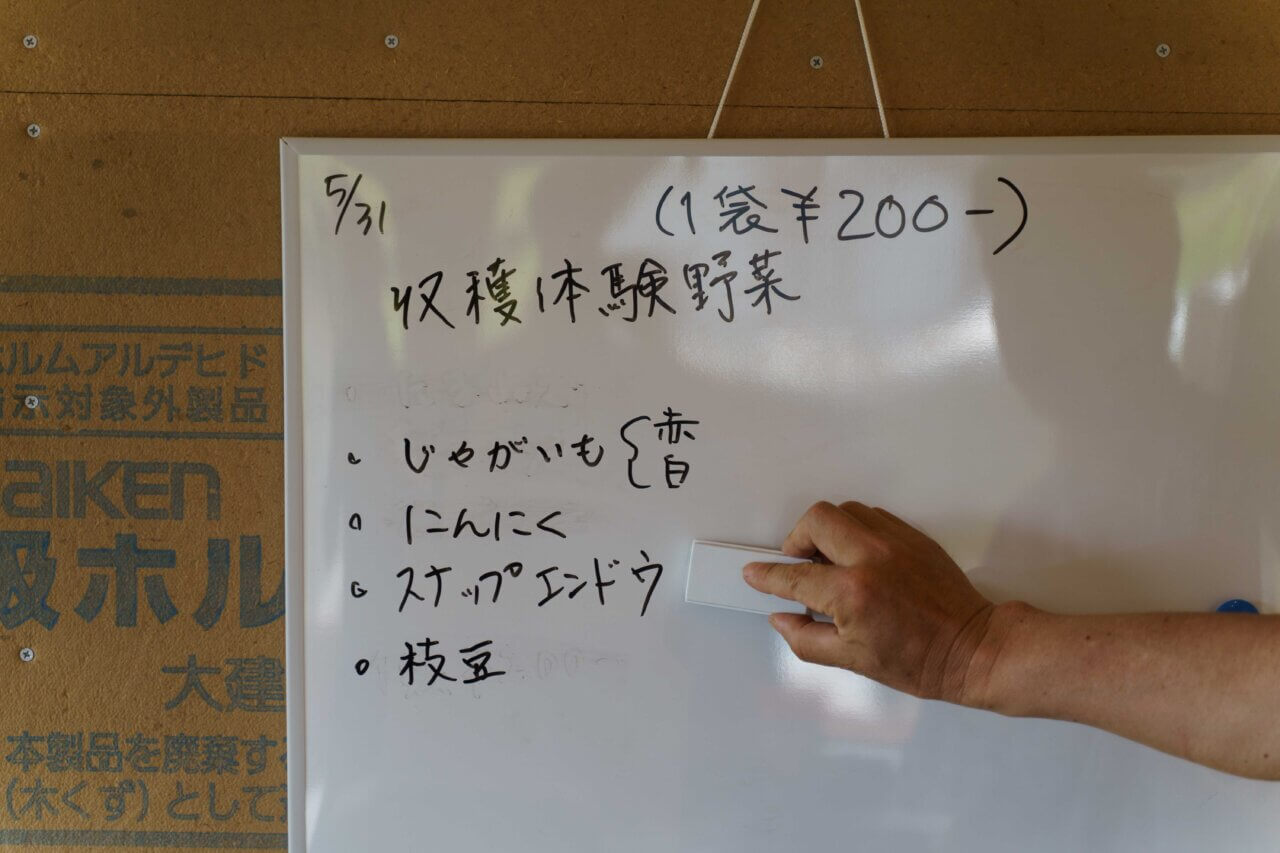 5/31
(1袋¥200-)
収穫体験野菜
じゃがいも{赤
白
にんにく
スナップエンドウ
枝豆
ホルムアルデヒド
示対象外製品
aiken
吸ホル
大建
本製品を廃棄す
(木くず)として